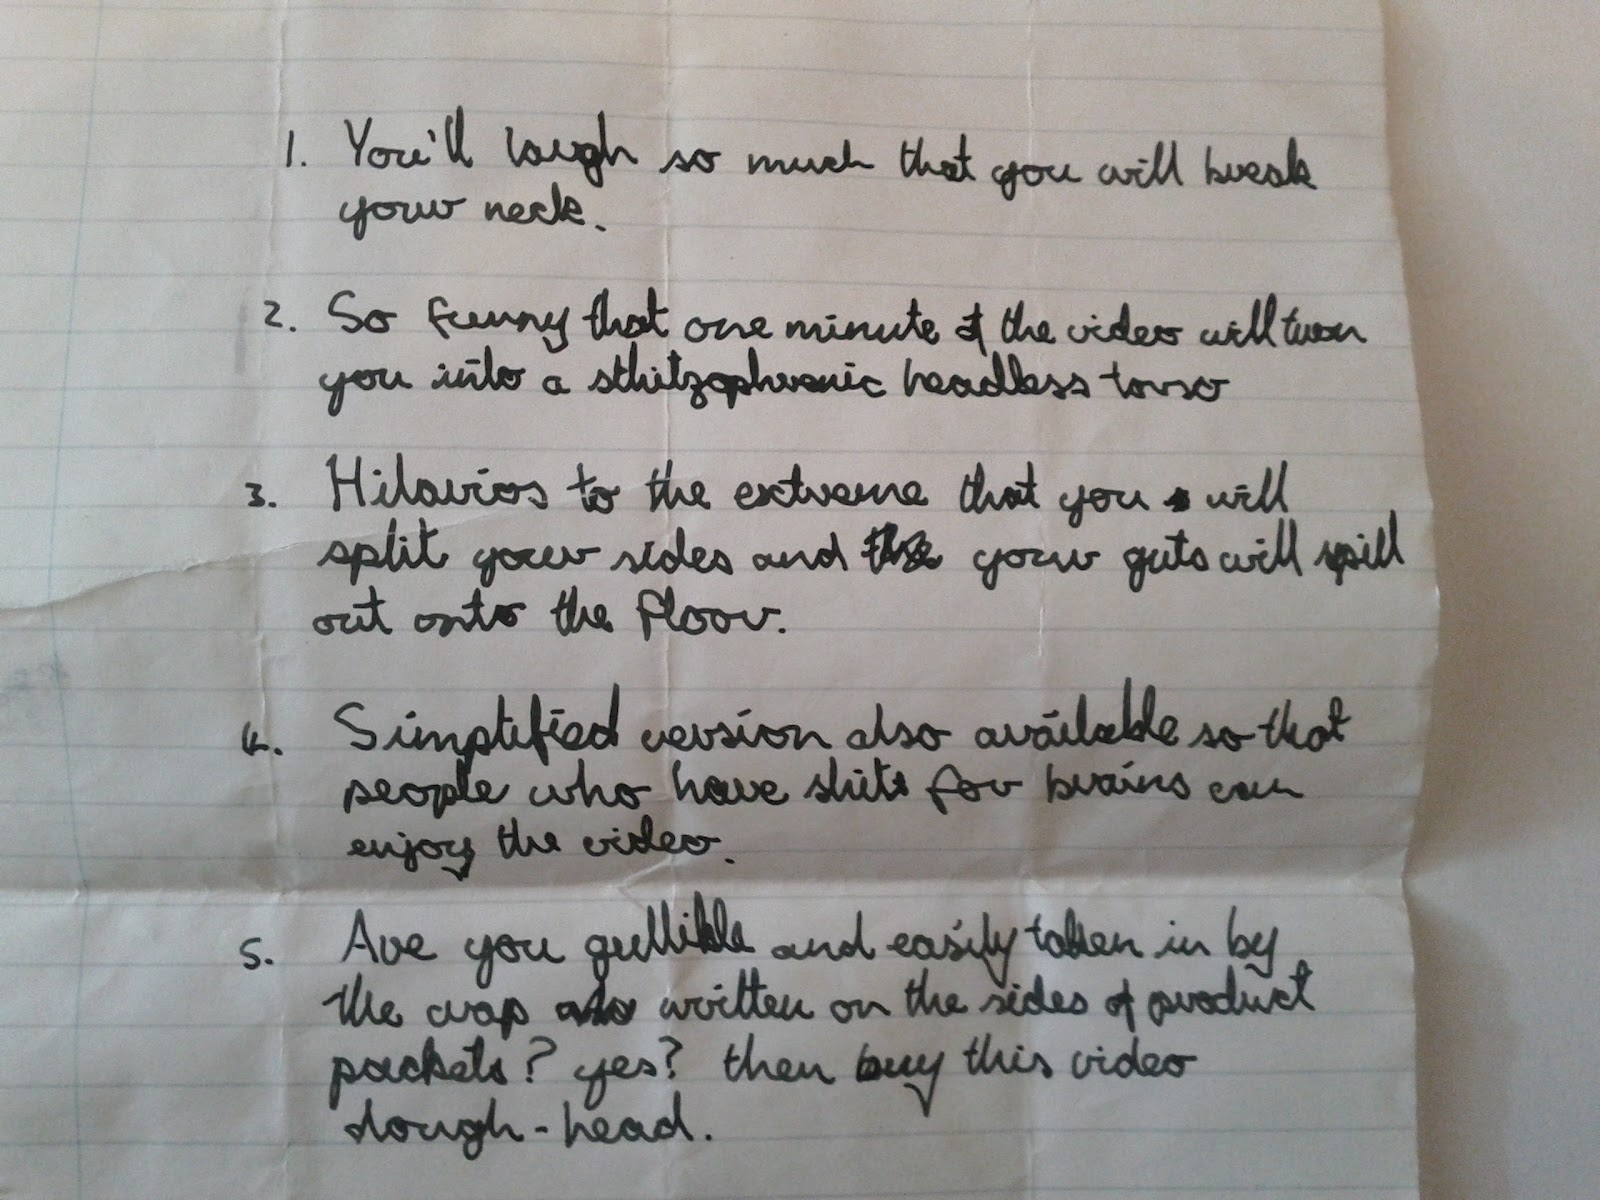 1. You'll laugh so much that you will break
your neck.
2. So funny that one minute of the video will turn
you into a sthitzophrenic headless torso
3. Hilarios to the extreme that you will
split your sides and your guts will spill
out onto the floor.
4. Simplified version also available so that
people who have shit for brains can
enjoy the video.
5. Are you gullible and easily taken in by
the crap written on the sides of product
packets? yes? then buy this video
dough-head.